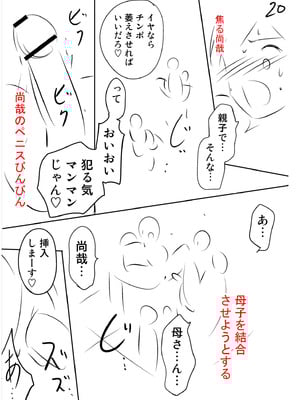 20
焦る尚哉
親子で…
そんな…
イヤなら
チンポ
萎えさせれば
いいだろ♡
って
おいおい
犯る気
マンマン
じゃん♡
ビク
ビク
尚哉のペニスびんびん
あ…
母子を結合
させようとする
母さ…ん…
尚哉…
挿入
しまーす♡